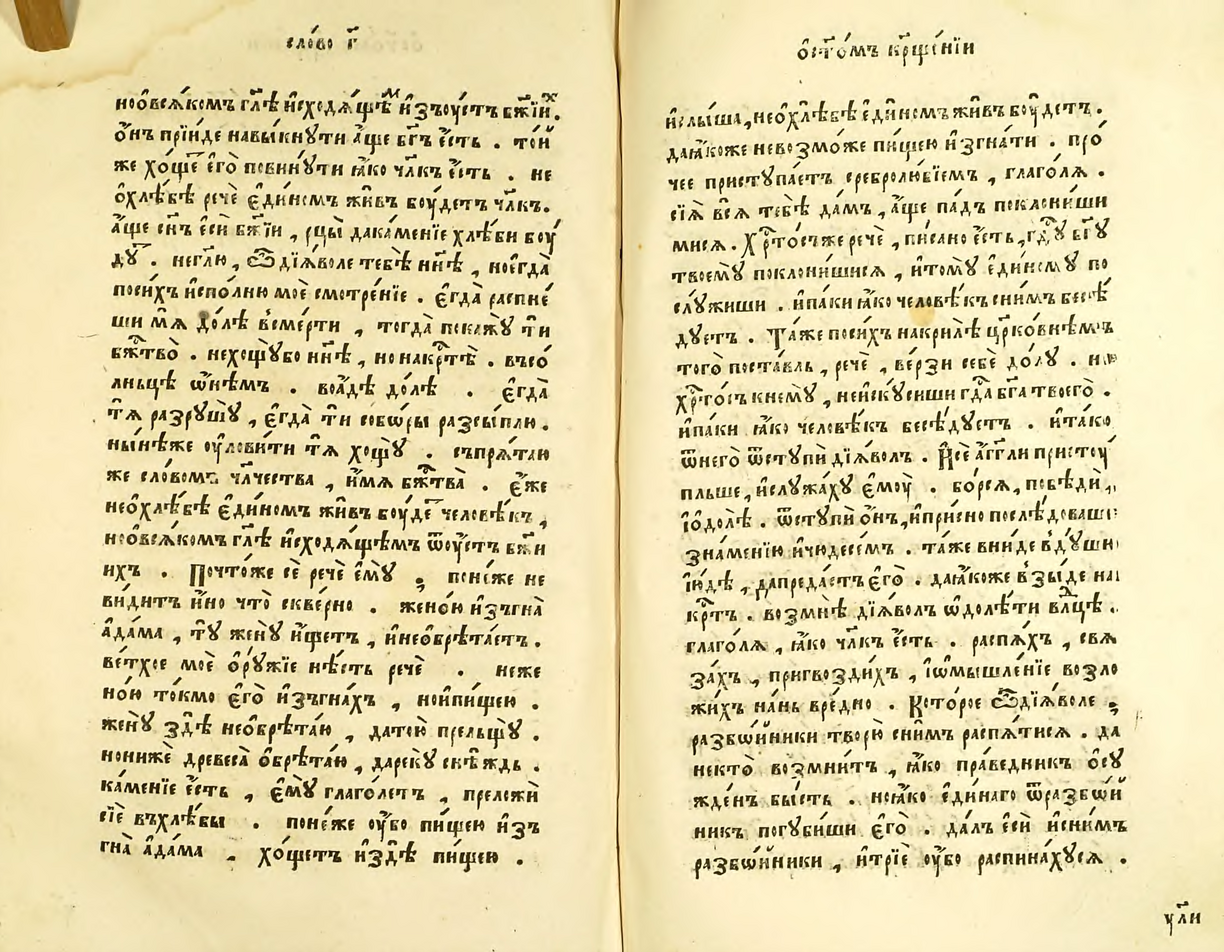 сло́во г҃
но ѡ҆всѧ́комъ гл҃ѣ и҆сходѧ́щѣм и҆зъоу҆стъ бж҃їих.
ѻ҆нъ прїи́де навы́кнꙋти а҆́ще бг҃ъ є҆́сть . то́й
же хо́ще є҆го̀ повинꙋ́ти ꙗ҆́ко чл҃къ є҆́сть . не
ѻ҆хлѣ́бѣ речѐ є҆ди́номъ жи́въ боу́детъ чл҃къ.
а҆́ще сн҃ъ є҆сѝ бж҃їи , рцы̀ дака́менїе хлѣ́би боу́
дꙋ . негл҃ю , ѽ дїѧ́воле тебѣ̀ нн҃ѣ , ноє҆гда̀
посихъ и҆спо́лню моѐ смотре́нїе . є҆гда̀ распне́
ши мѧ̀ до́лѣ в сме́рти , тогда̀ покажꙋ̀ ти
бж҃тво̀ . нехощꙋ̀бо нн҃ѣ , но накр҃тѣ . въсо́
лньцѣ ѡ҆́нѣмъ . воа́дѣ до́лѣ . є҆гда̀
тѧ̀ разрꙋшꙋ̀ , є҆гда̀ ти собѡ́ры разсы́плю .
ны́нѣже оу҆лови́ти тѧ̀ хощꙋ̀ . съпрѧ́таю
же сло́вомъ чл҃чества , и҆́мѧ бж҃тва̀ . є҆́же
нео҆хлѣ́бѣ є҆ди́номъ жи́въ боу́де человѣ́къ ,
но ѡ҆всѧ́комъ гл҃ѣ и҆сходѧ́щѣмъ ѿоу҆стъ бж҃и
ихъ . Почто́же сѐ речѐ є҆мꙋ̀ ; поне́же не
ви́дитъ и҆́но что̀ скве́рно . жено́ю и҆зъгна̀
а҆да́ма , тꙋ̀ женꙋ̀ и҆́щетъ , и҆необрѣта́етъ .
ве́тхое моѐ о҆рꙋ́жїе нѣ́сть речѐ . неже
но́ю то́кмо є҆го̀ и҆зъгна́хъ , нои҆пи́щею .
женꙋ̀ здѣ̀ необрѣта́ю , дато́ю прельщꙋ̀ .
нонижѐ древеса̀ о҆брѣта́ю , дарекꙋ̀ снѣ́ждь .
ка́менїе є҆́сть , є҆мꙋ̀ глаго́летъ , преложѝ
сїѐ въхлѣ́бы . поне́же оу҆́бо пи́щею и҆зъ
гна̀ а҆да́ма . хо́щетъ и҆здѣ̀ пи́щею .
ѻ҆ст҃о́мъ кр҃ще́нїи
и҆слы́ша, нео҆хлѣ́бѣ є҆ди́номъ жи́въ боу́детъ .
даꙗ҆́коже невозмо́же пи́щею и҆згна́ти . про́
чее пристꙋпа́етъ сребролю́бїемъ , глаго́лѧ .
сїѧ̀ всѧ̀ тебѣ̀ да́мъ , а҆́ще па́дъ поклони́ши
мисѧ . Хр҃то́съже речѐ , пи́сано є҆́сть , гд҃ꙋ бг҃ꙋ
твоемꙋ̀ поклони́шисѧ , и҆томꙋ̀ є҆ди́номꙋ по
слꙋ́жиши . и҆па́ки ꙗ҆́ко человѣ́къ сни́мъ бесѣ́
дꙋетъ . Та́же посихъ накрилѣ̀ цр҃ко́внѣмъ
того̀ поста́вль , речѐ , ве́рзи себѐ до́лꙋ . и
хр҃то́съ кнемꙋ̀ , неи҆скꙋ́сиши гд҃а бг҃а твоего̀ .
и҆па́ки ꙗ҆́ко человѣ́къ бесѣ́дꙋетъ . и҆та́ко
ѿнего̀ ѿстꙋпѝ дїѧ́волъ . И҆сѐ а҆́гг҃ли пристоу́
пльше, и҆слꙋжа́хꙋ є҆моу̀ . бори́сѧ, побѣдѝ ,
ї҆о́долѣ . ѿстꙋпѝ о҆́нъ, и҆при́сно послѣ́доваши
зна́менїю и҆чюдесе́мъ . та́же вни́де вдꙋ́шꙋ
ї҆ю́дѣ , дапреда́стъ є҆го̀ . даꙗ҆́коже взы́де на
кр҃тъ . возмнѣ̀ дїѧ́волъ ѡ҆долѣ́ти влд҃цѣ .
глаго́лѧ , ꙗ҆́ко чл҃къ є҆́сть . распѧ́хъ , свѧ
за́хъ , пригвозди́хъ , ї҆ѡмышле́нїе возло
жи́хъ на́нь вре́дно . Кото́рое ѽдїѧ́воле ;
разбѡ́йники творю̀ сни́мъ распѧ́тисѧ . да
некто̀ возмни́тъ , ꙗ҆́ко пра́ведникъ ѻ҆сꙋ
жде́нъ бы́сть . ноꙗ҆́ко є҆ди́наго ѿразбѡ́й
никъ погꙋби́ши є҆го̀ . да́лъ є҆сѝ и҆сни́мъ
разбѡ́йники , и҆трїѐ оу҆́бо распина́хꙋсѧ .
ꙋ҆́ли